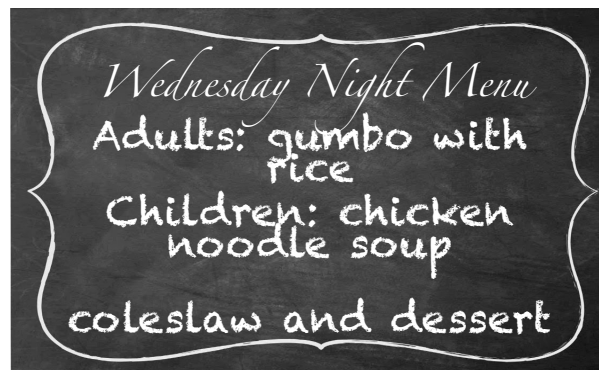 Wednesday Night Menu
Adults: gumbo with
rice
Children: chicken
noodle soup
coleslaw and dessert